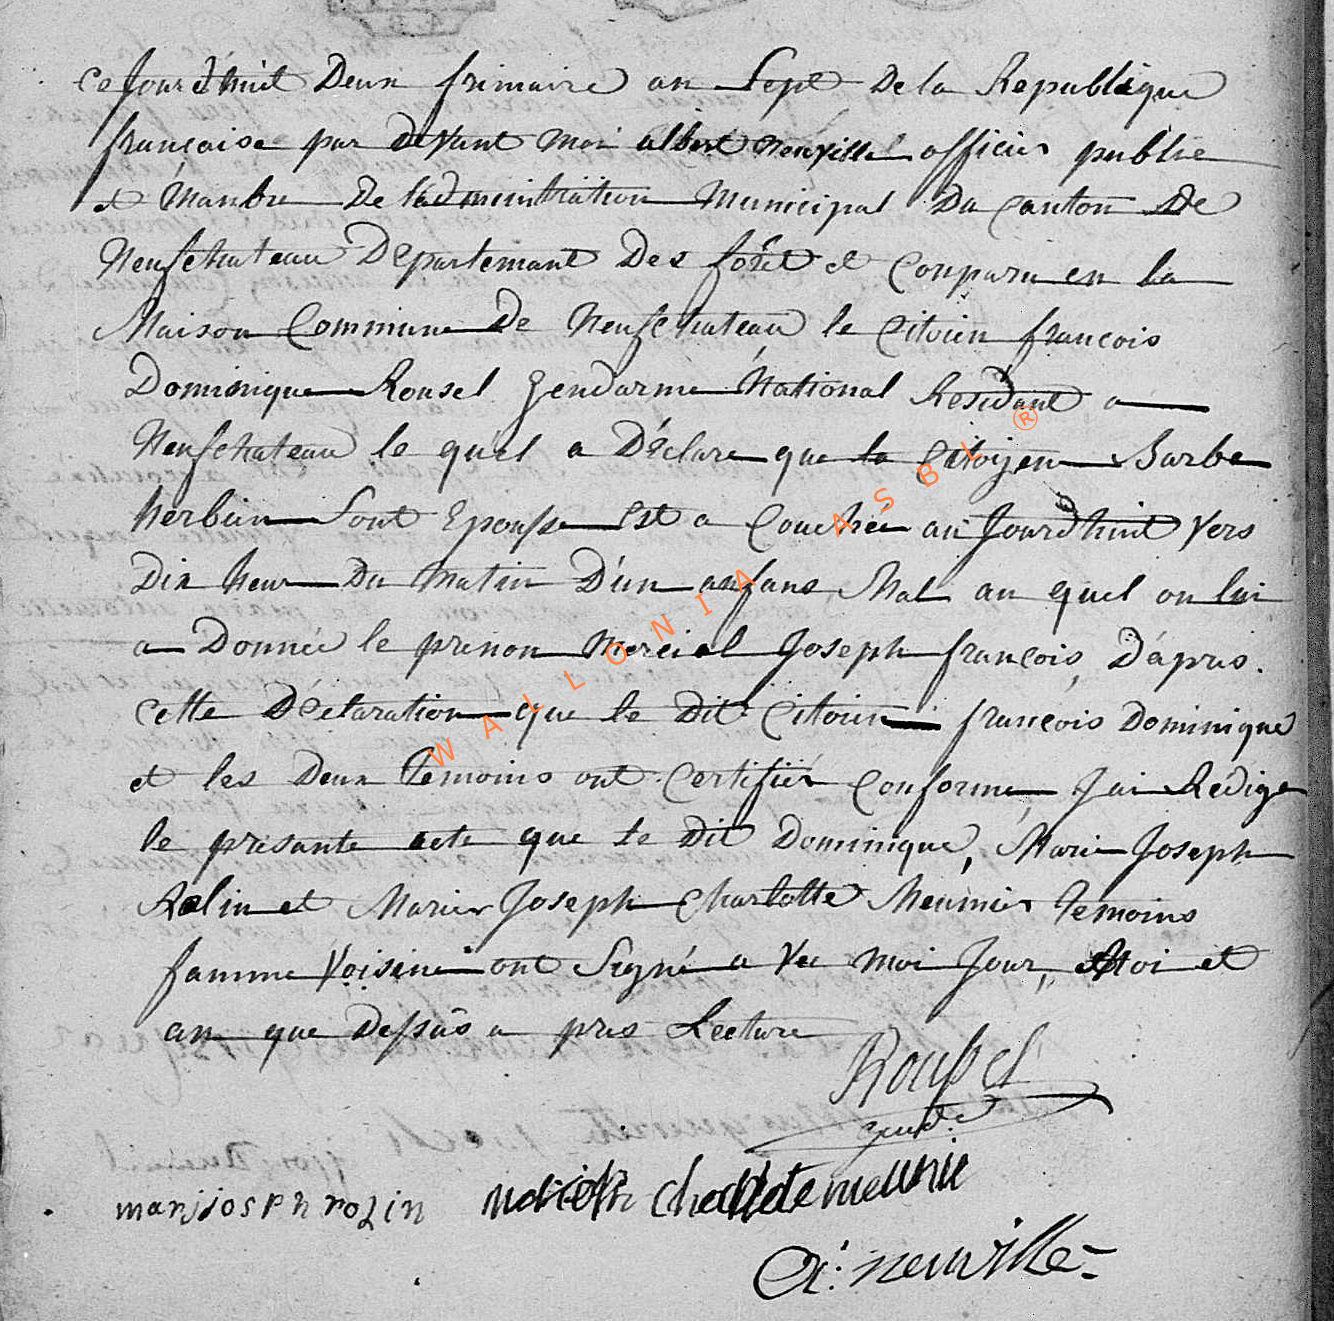 ce Jourd'huit Deux frimaire an Sept De la Republique
française par devant moi albert neuville officier publie
et Manbre De l'adminitration Municipal Du Canton De
Neufchateau Departemant Des forêt et Conparu en la
Maison Commune De Neufchateau le Citoien françois
Dominique Rousel Gendarme National Residant a
Neufchateau le quel a Déclare que la Citoyene Barbe
herbin Sont Epousse est a Couchée au Jourd'huit Vers
Dix heur Du Matin D'un anfans Mal au quel on lui
a Donnée le prenon Mercial Joseph françois, D'âpris
cette Déclaration que le Dit Citoien françois Dominique
et les Deux Temoins ont Certifiér Conforme, J'ai Rédige
le présante acte que le Dit Dominique, Marie Joseph
Rolin et Marie Joseph Charlotte Meunier Temoins
famme Voisine ont Signé a Vec moi Jour, Moi et
an que Dessus a pris Lecture
Roussel
gend.e
marijosph rozin Charlote meunie
A: neuville
WALLONIA ASBL ®